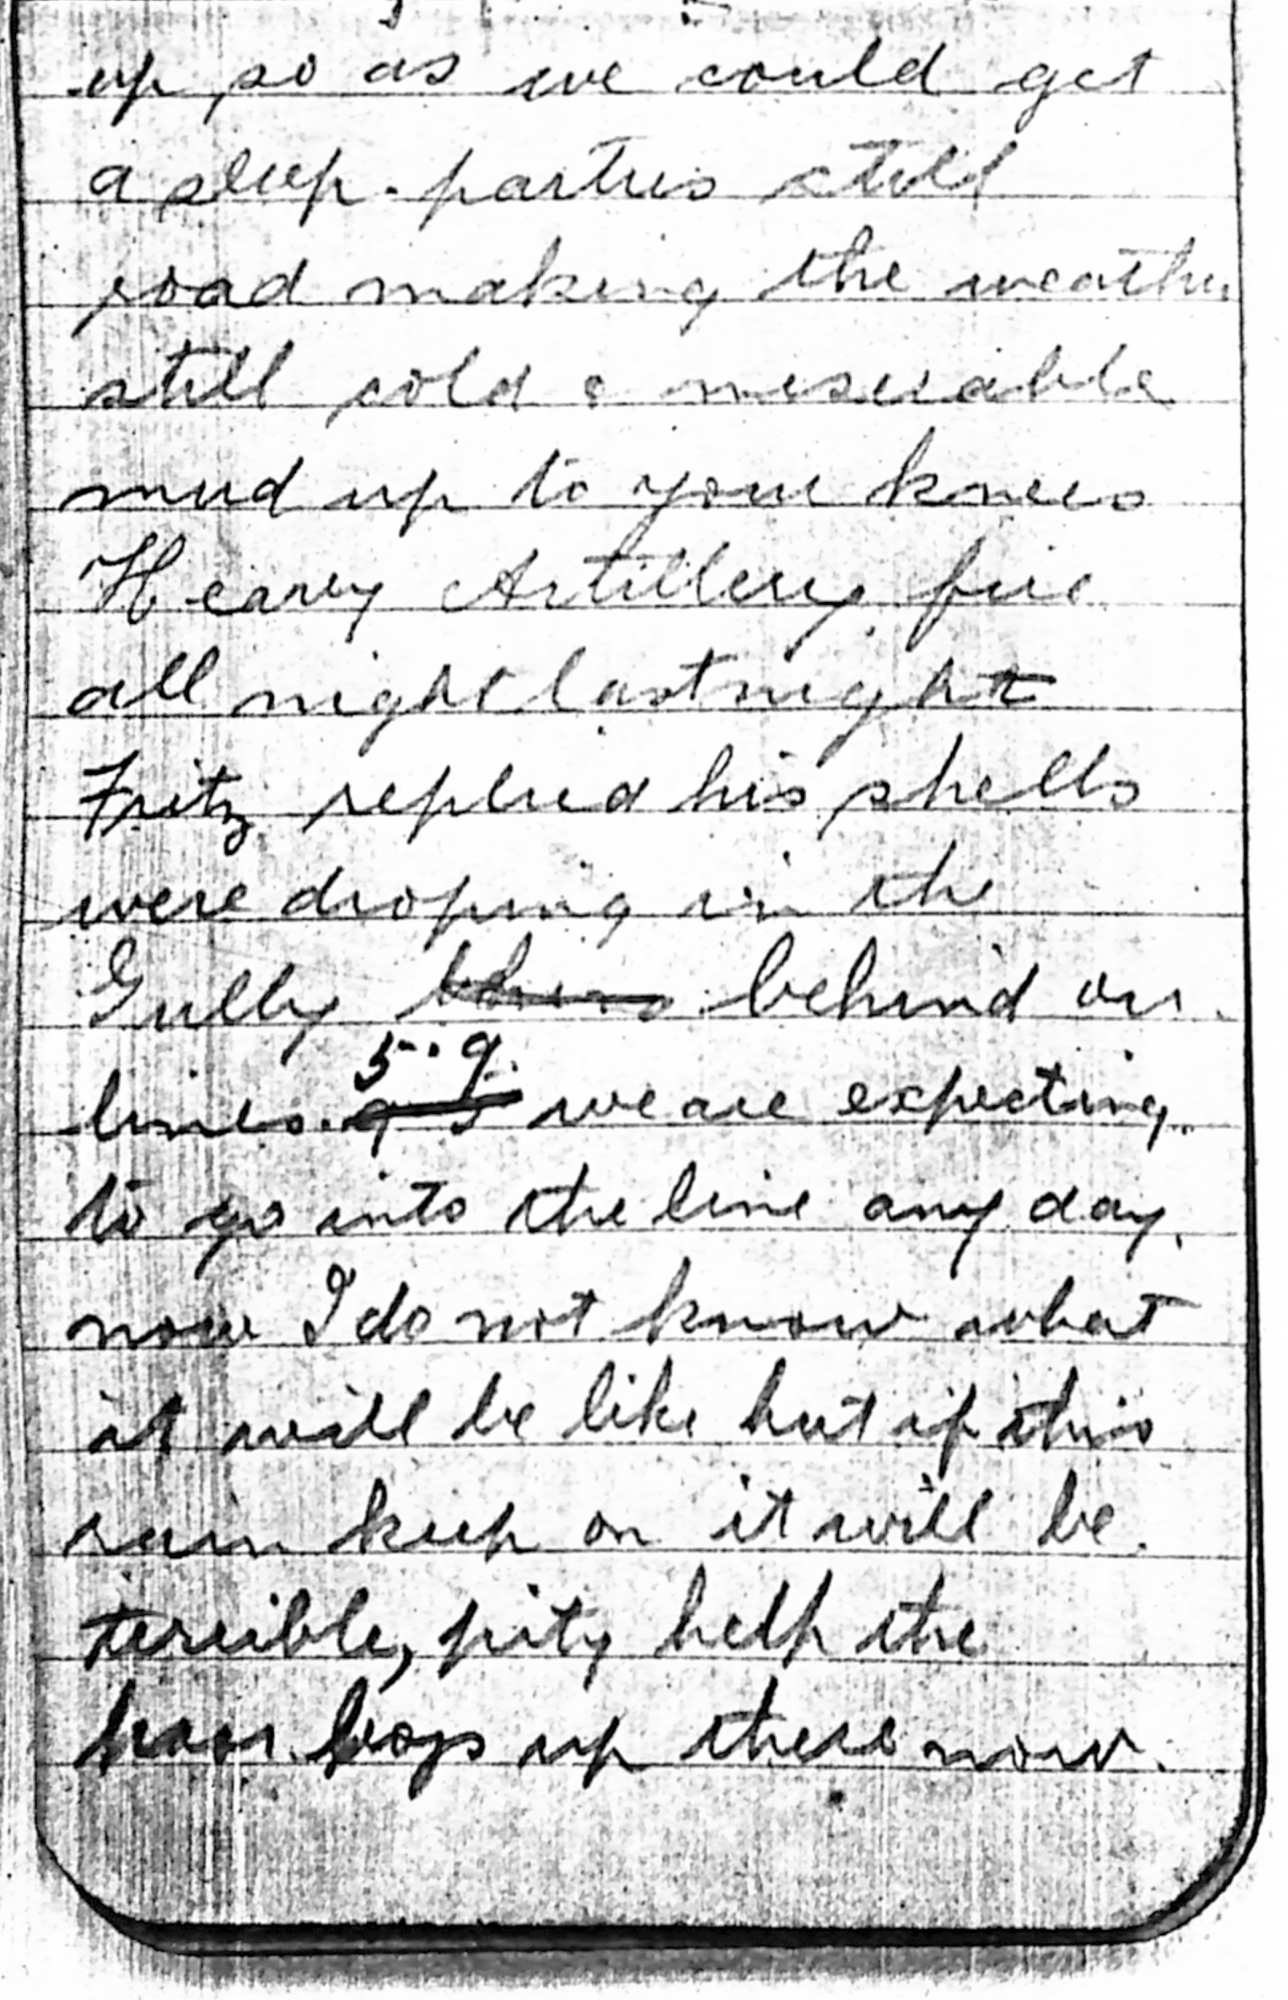 up, so as we could get
a sleep. parties still
road making the weather
still cold & miserable
mud up to your knees
Heavy Artillery fire
all night last night
Fritz replied his shells
were droping in the
Gully behind our
lines. 5.9 we are expecting
to go into the line any day
now I do not know what
it will be like but if this
rain keep on it will be
terrible, pity help the
poor boys up there now.